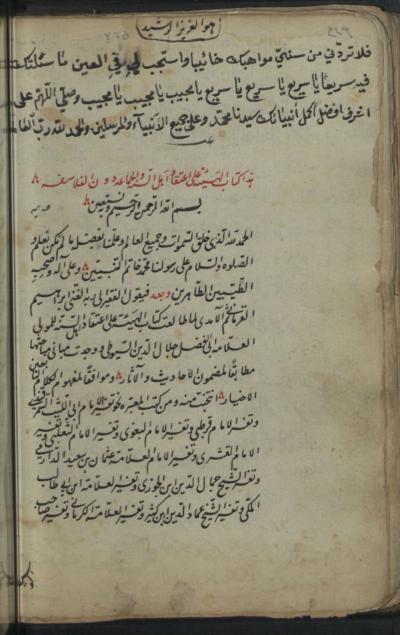 هو العزيز الرشيد
فلا تردني من سني مواهبك خائبا واستجب لي في الحين ما سئلتك
فيه سريعا يا سريع يا سريع يا سريع يا مجيب يا مجيب يا مجيب وصلى اللهم على
اشرف افضل اكمل أنبيائك سيدنا محمد وعلى جميع الانبياء والمرسلين والحمد لله رب العالمين
هذا كتاب الهيئة على اعتقاد اهل السنة والجماعة دون الفلاسفة
بسم الله الرحمن الرحيم وبه نستعين
الحمد لله الذى خلق السموات وجميع العالم وعلمنا بفضله ما لم نكن نعلم و
الصلوة والسلام على رسولنا محمد خاتم النبيين وعلى آله وصحبه
الطيبين الطاهرين وبعد فيقول الفقير الى ربه الغنى ابراهيم
القرمانى ثم الآمدى لما طالعت كتاب الهيئة على اعتقاد اهل السنة للمولى
العلامة ابى الفضل جلال الدين السيوطى ووجدت مبانى مباحثها
مطابقا لمضمون الاحاديث والآثار وموافقا لمفهوم الكلام
الاخيار انتخبت منه ومن كتب المعتبرة نحو تفسير الامام ابى الليث السمرقندى
وتفسير الامام قرطبى وتفسير الامام البغوى وتفسير الامام الثعلبى وتفسير
الامام القشيرى وتفسير الامام العلامة عثمان بن سعيد الدارمى
وتفسير الشيخ جمال الدين ابن الجوزى وتفسير العلامة ابى طالب
المكى وتفسير الشيخ عماد الدين ابن كثير وتفسير العلامة الكرمانى وتفسير صاحب